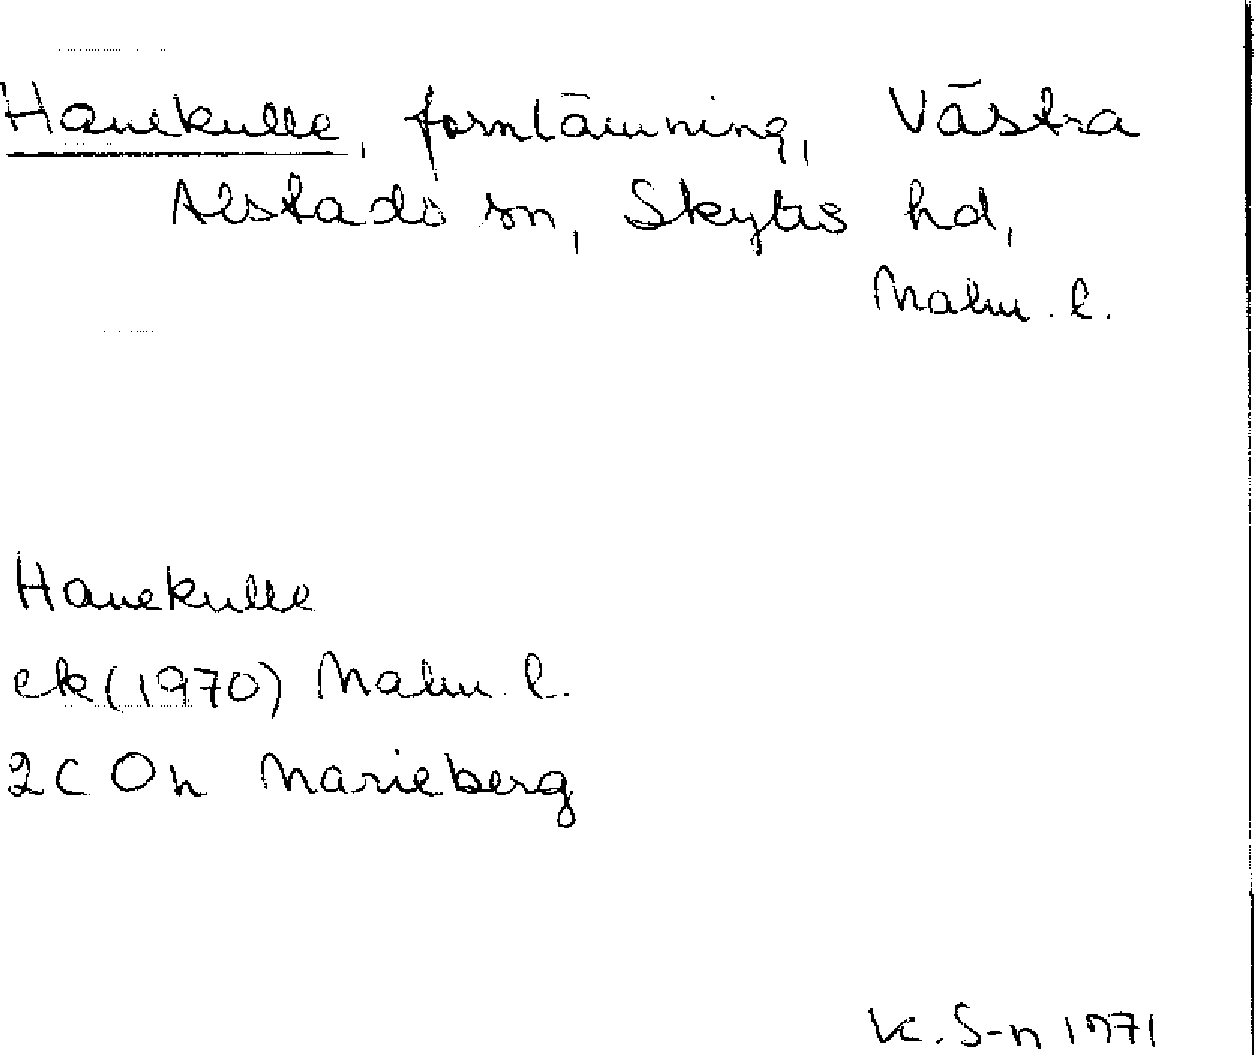 Hanekulle, fornlämning, Västra
Alstads sn, Skytts hd,
Malm. l.
Hanekulle
ek (1970) Malm. l.
2C 0h Marieberg
K. S-n 1971